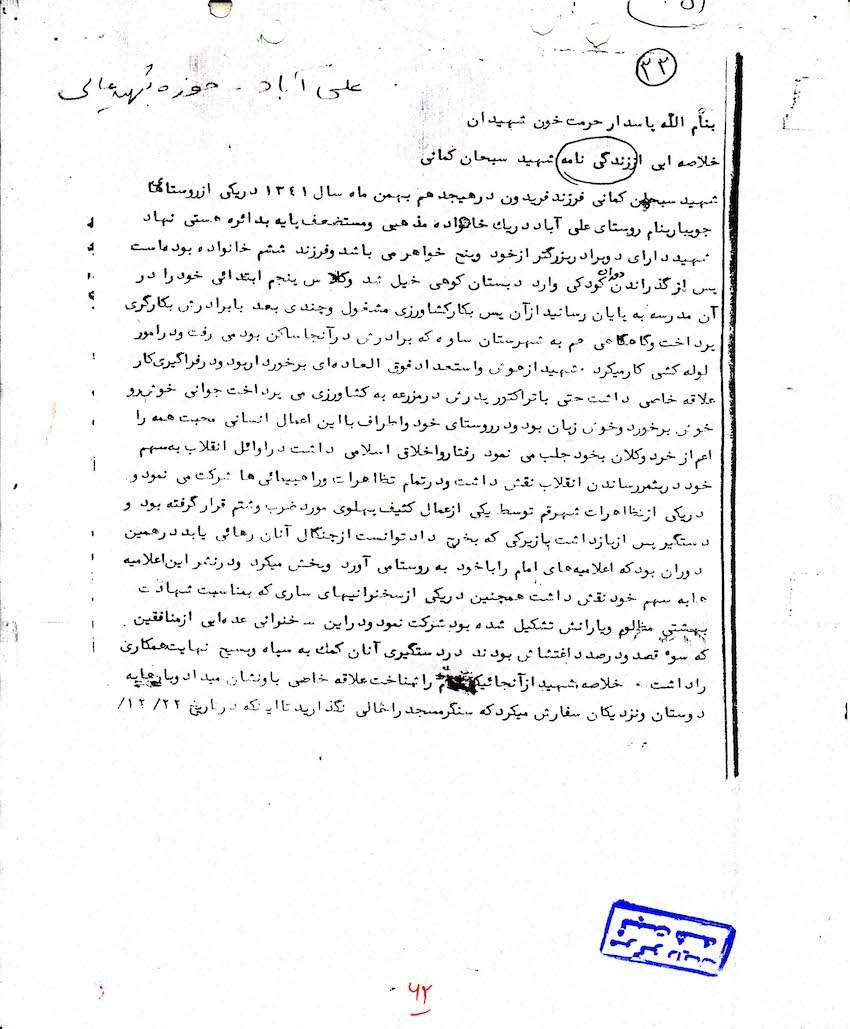 ۲۲
علی آباد - حوزه شهید
بنام الله پاسدار حرمت خون شهیدان
خلاصه ایی اززندگی نامه شهید سبحان کمانی
شهید سبحان کمانی فرزند فریدون در هیجدهم بهمن ماه سال ۱۳۴۱ دریکی ازروستاهای
جویباربنام روستای علی آباد دریك خانواده مذهبی ومستضعف پابه دائره هستی نهاد
شهید دارای دوبرادربزرگتر ازخود وپنج خواهر می باشد وفرزند ششم خانواده بوده است
پس از گذراندن دوران کودکی وارد دبستان کوهی خیل شد وکلاس پنجم ابتدائی خودرا در
آن مدرسه به پایان رسانید ازآن پس بکارکشاورزی مشغول وچندی بعد بابرادرش بکارگری
پرداخت وگاهگاهی هم به شهرستان ساوه که برادرش درآنجا ساکن بود می رفت ودرامور
لوله کشی کارمیکرد . شهید ازهوش واستعداد فوق العاده ای برخورداربود ودرفراگیری کار
علاقه خاصی داشت حتی باتراکتور پدرش درمزرعه به کشاورزی می پرداخت جوانی خوش رو
خوش برخورد وخوش زبان بود ودرروستای خود واطراف بااین اعمال انسانی محبت همه را
اعم از خرد وکلان بخود جلب می نمود رفتارواخلاق اسلامی داشت دراوائل انقلاب به سهم
خود دربثمررساندن انقلاب نقش داشت ودرتمام تظاهرات وراهپیمائی ها شرکت می نمود و
دریکی ازتظاهرات شهرقم توسط یکی ازعمال کثیف پهلوی مورد ضرب وشتم قرارگرفته بود و
دستگیر پس ازبازداشت بازیرکی که بخرج داد توانست ازچنگال آنان رهائی یابد درهمین
دوران بود که اعلامیه های امام راباخود به روستا می آورد وپخش میکرد ودرنشر این اعلامیه
ها به سهم خود نقش داشت همچنین دریکی ازسخنرانیهای ساری که بمناسبت شهادت
بهشتی مظلوم ویارانش تشکیل شده بود شرکت نمود ودراین سخنرانی عده ایی ازمنافقین
که سوء قصد ودرصدد اغتشاش بودند دردستگیری آنان کمك به سپاه وبسیج نهایت همکاری
راداشت . خلاصه شهید ازآنجائیکه را شناخت علاقه خاصی باونشان میداد وبارها به
دوستان ونزدیکان سفارش میکرد که سنگرمسجد راخالی نگذارید تااینکه درتاریخ ۲۲/ ۱۲/
ثبت شد
۶۲